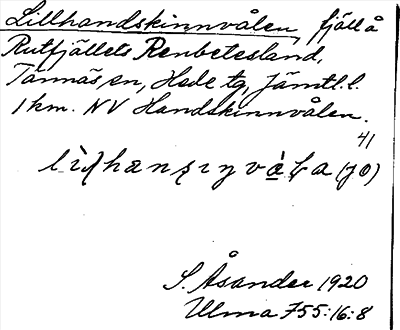 Lillhandskinnvålen, fjäll å
Rutfjällets Renbetesland,
Tännäs sn, Hede tg, Jämtl. l.
1 km. NV Handskinnvålen.
41
(JO)
S. Åsander 1920
Ulma 755:16:8